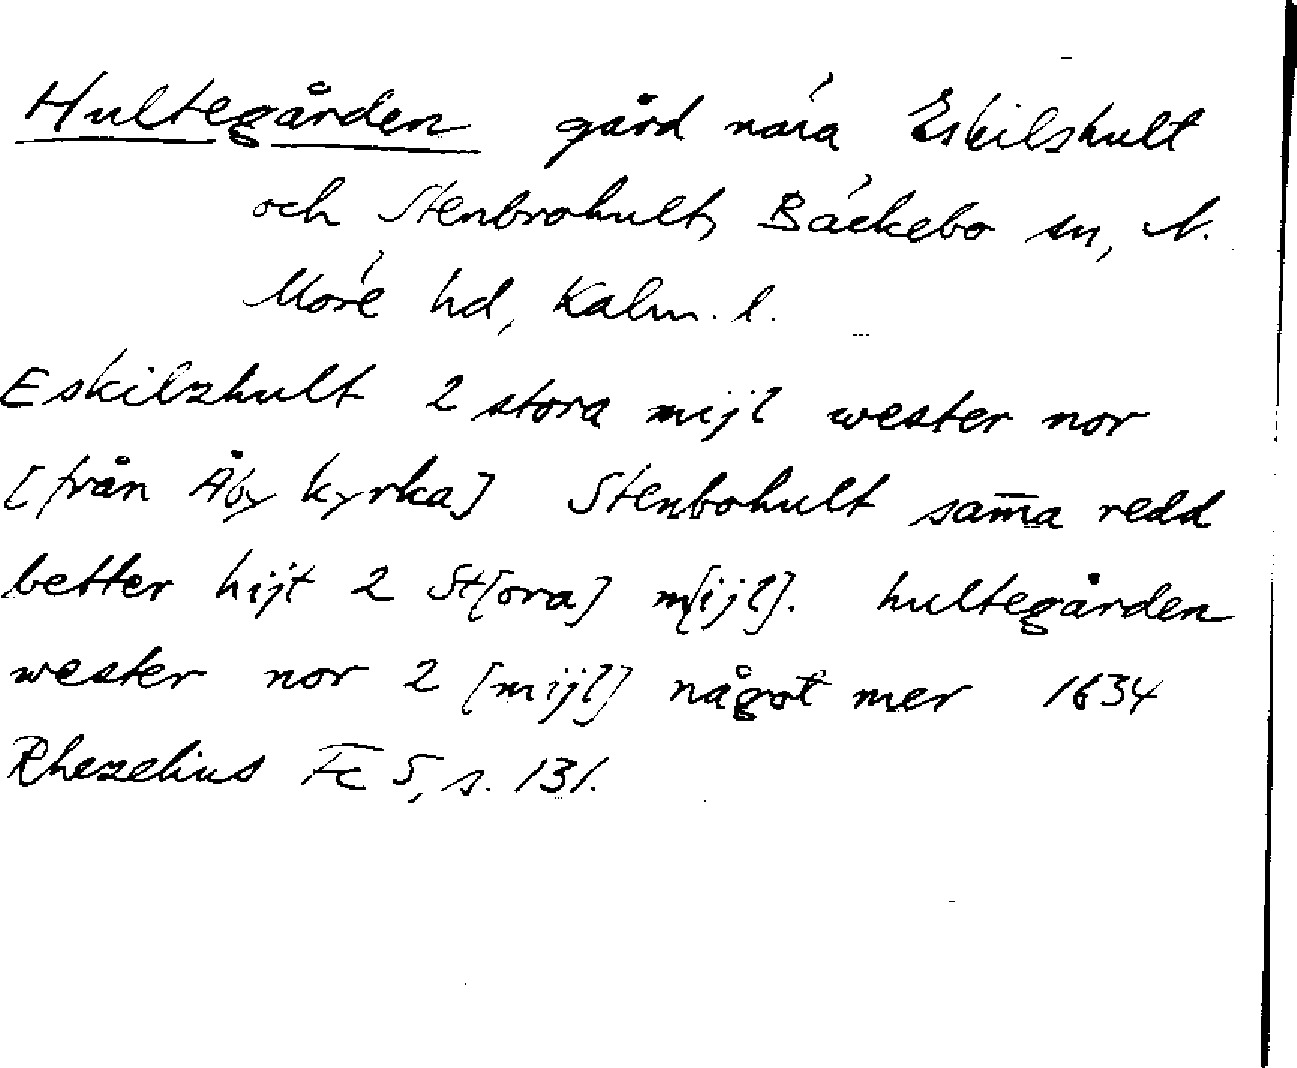 Hultegården gård nära Eskilshult
och Stenbrohult, Bäckebo sn, N.
Möre hd, Kalm. l.
Eskilzhult 2 stora mijl wester nor
[från Åby kyrka] Stenbohult sam̅a redd
better hijt 2 St[ora] m[ijl]. hultegården
wester nor 2 [mijl] något mer 1634
Rhezelius Fc 5, s. 131.